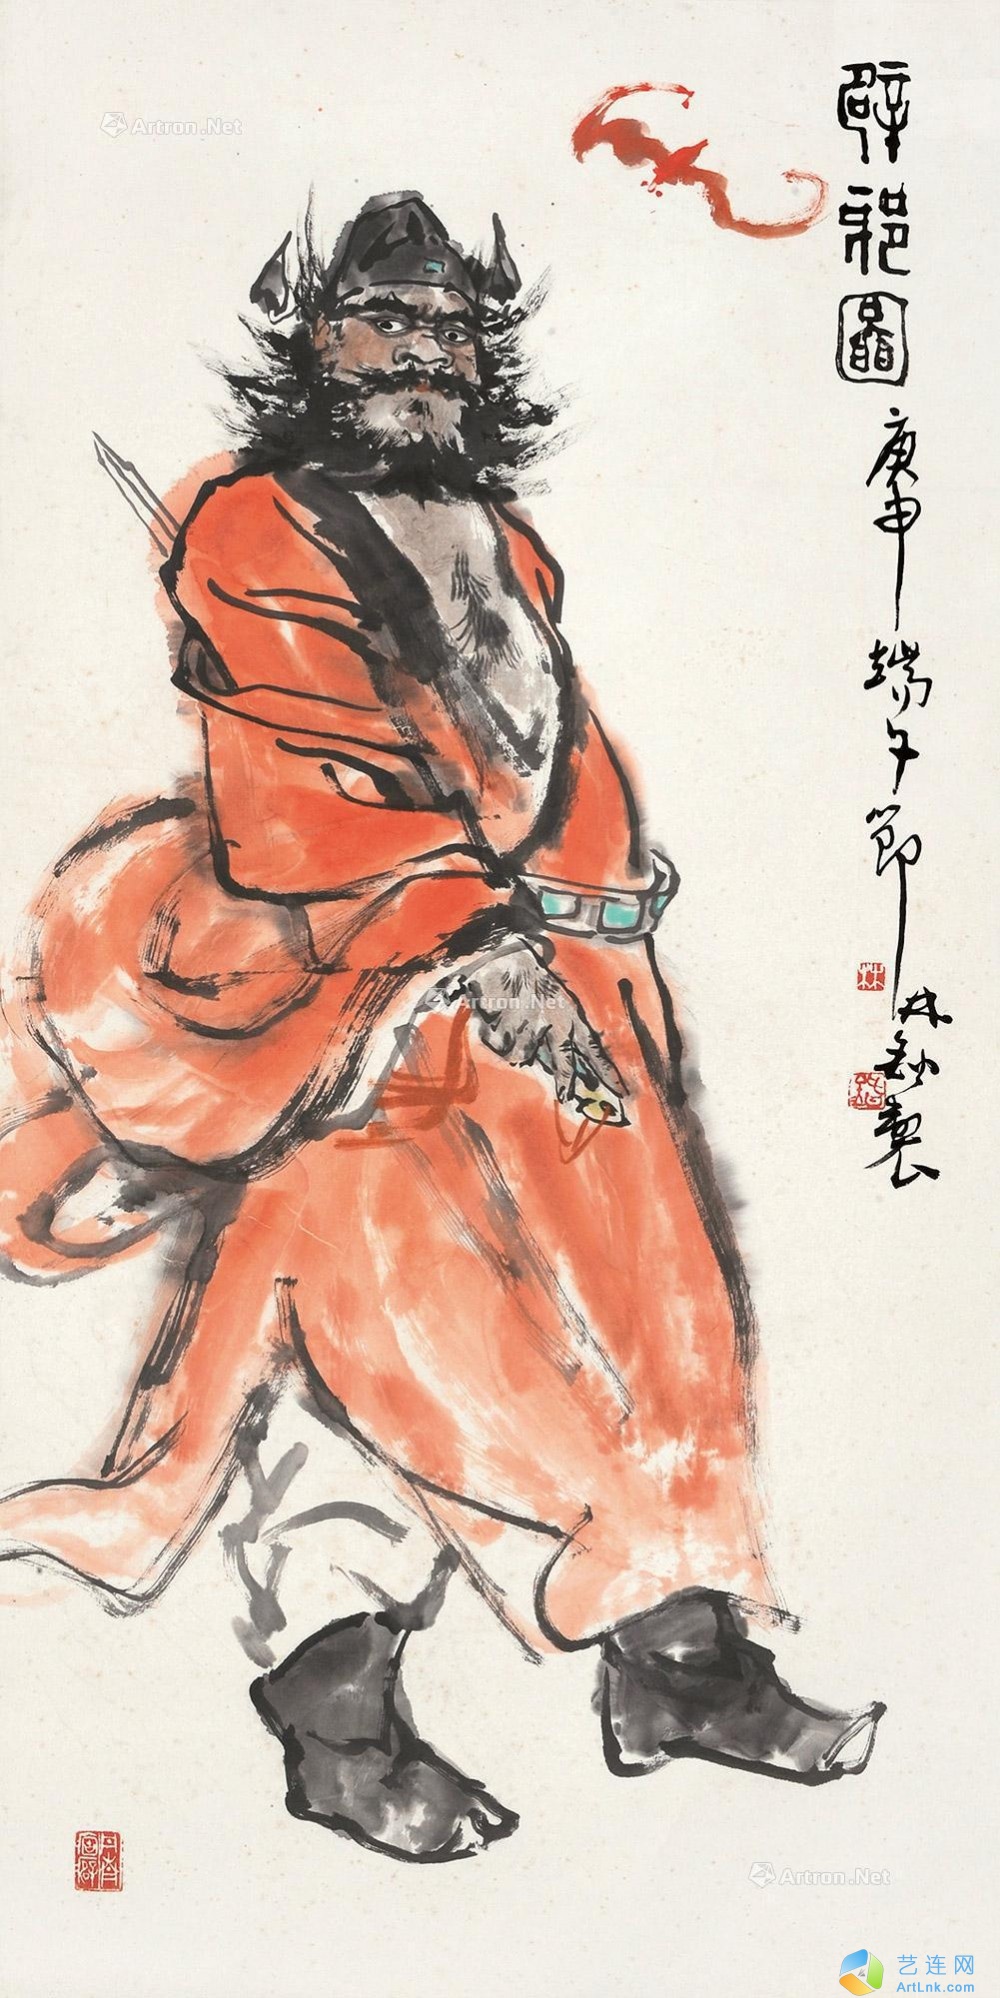 辟邪圖
庚申端午節
林鍇製
林
鍇
Artron.Net
Artron.Net
Artron.Net
艺连网
ArtLnk.com